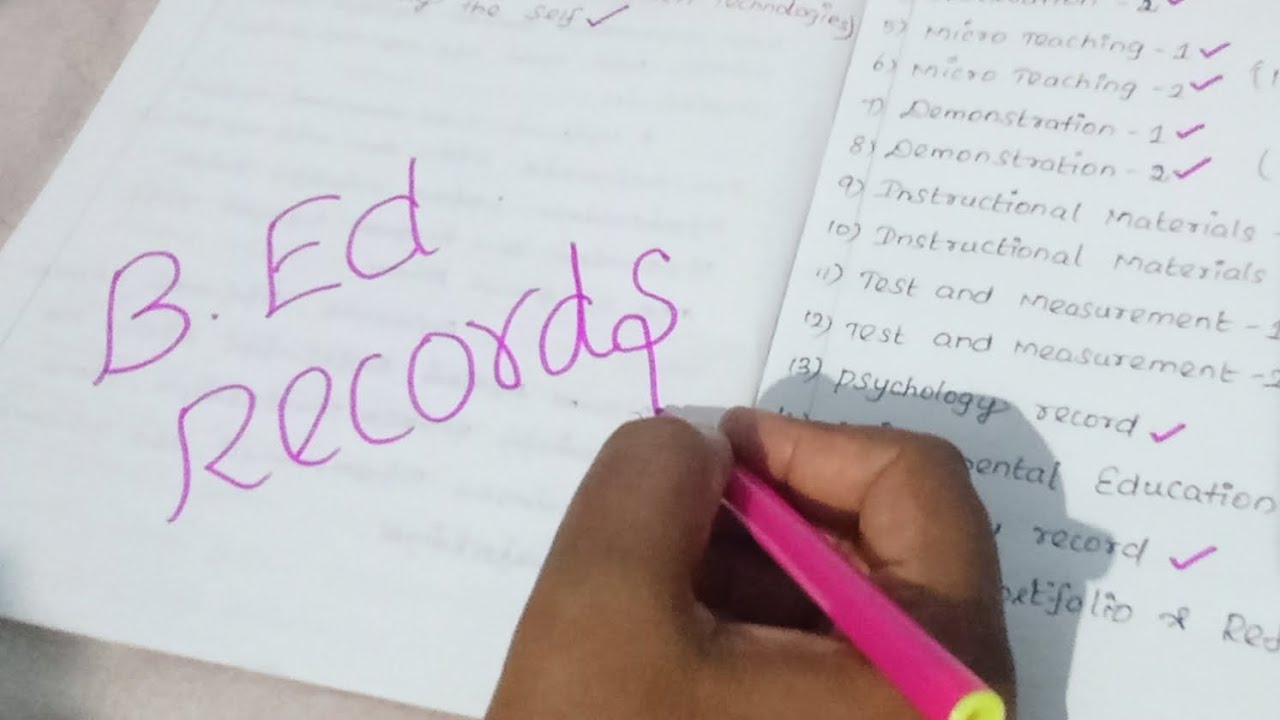 the self ✓
Technologies)
B. Ed
Records
2 ✓
5) Micro Teaching - 1 ✓
6) Micro Teaching - 2 ✓
7) Demonstration - 1 ✓
8) Demonstration - 2 ✓
9) Instructional Materials -
10) Instructional Materials
11) Test and Measurement - 1
12) Test and measurement - 2
13) psychology record ✓
Education
record ✓
&